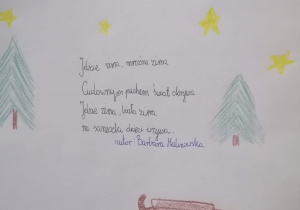 Idzie zima, mroźna zima
Cudownym puchem świat okrywa
Idzie zima, biała zima
na saneczki dzieci wzywa.
autor Barbara Malinowska